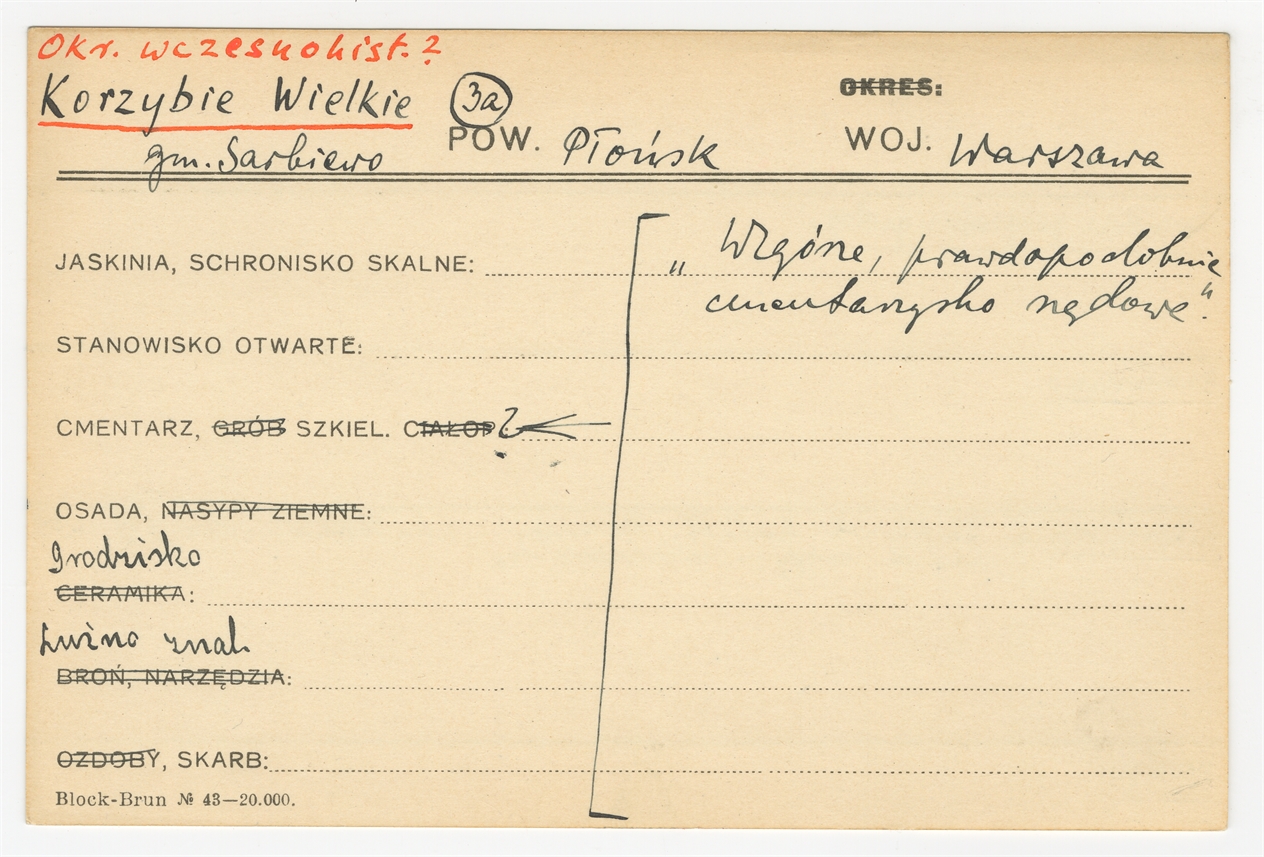 Okr. wczesnohist.?
Korzybie Wielkie 3a OKRES:
gm. Sarbiewo POW. Płońsk WOJ. Warszawa
JASKINIA, SCHRONISKO SKALNE: „Wzgórze, prawdopodobnie
cmentarzysko rzędowe".
STANOWISKO OTWARTE:
CMENTARZ, GRÓB SZKIEL. CIAŁOP.?
OSADA, NASYPY ZIEMNE:
grodzisko
CERAMIKA:
Luźno znal.
BROŃ, NARZĘDZIA:
OZDOBY, SKARB:
Block-Brun № 43—20.000.